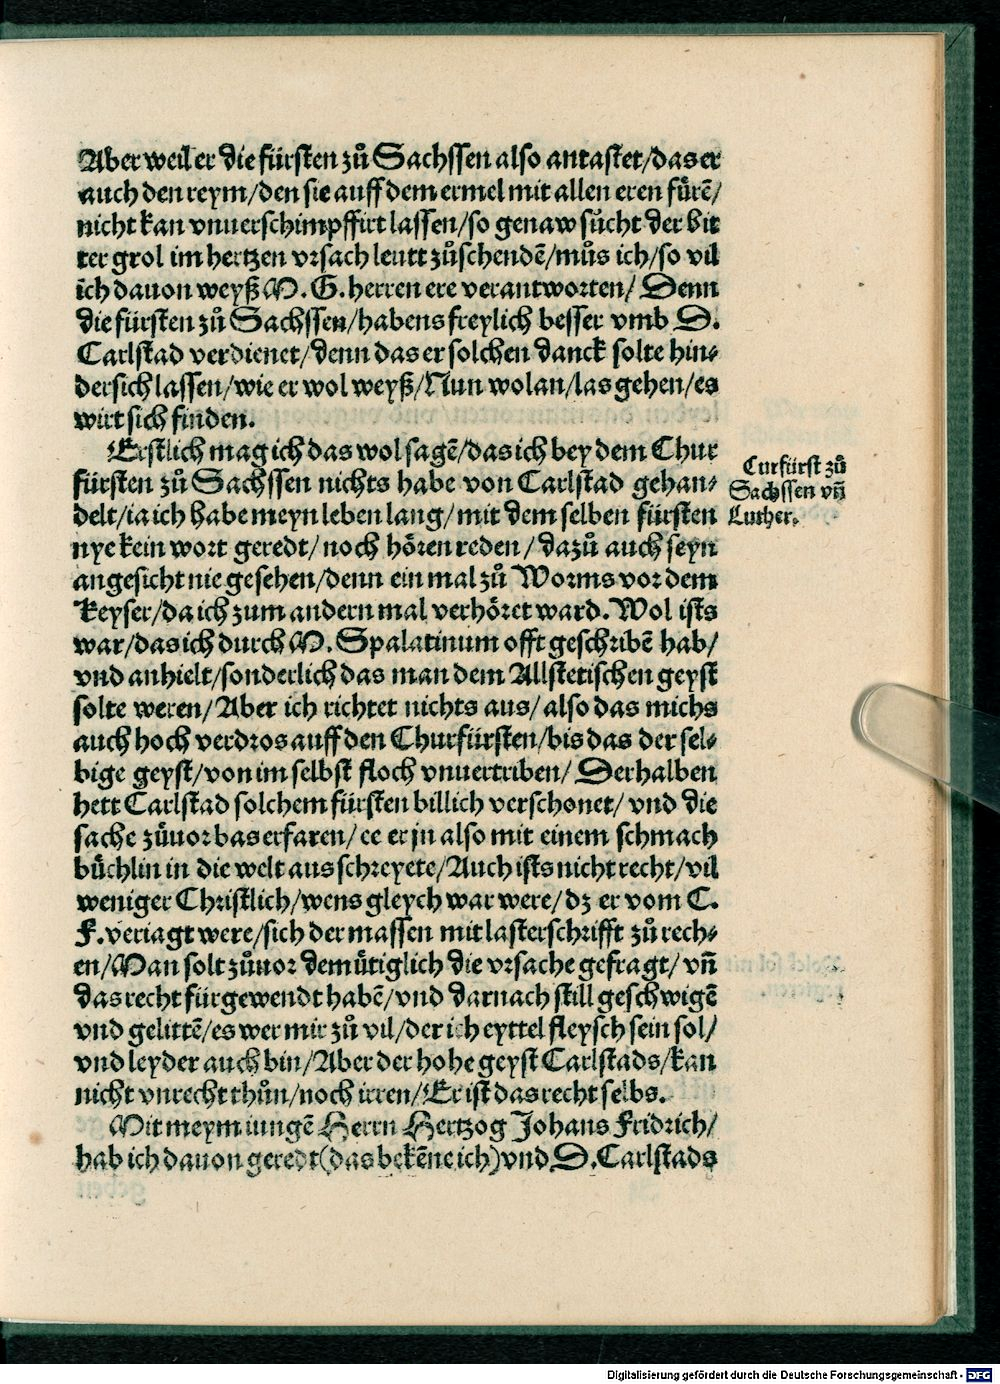 Aber weil er die fürsten zů Sachssen also antastet/das er
auch den reym/den sie auff dem ermel mit allen eren fůrē/
nicht kan vnuerschimpffirt lassen/so genaw sůcht der bit
ter grol im hertzen vrsach leutt zůschendē/můs ich/so vil
ich dauon weyß M. G. herren ere verantworten/ Denn
die fürsten zů Sachssen/habens freylich besser vmb D.
Carlstad verdienet/denn das er solchen danck solte hin⸗
dersich lassen/wie er wol weyß/Nun wolan/las gehen/es
wirt sich finden.
Erstlich mag ich das wol sagē/das ich bey dem Chur
fürsten zů Sachssen nichts habe von Carlstad gehan⸗
delt/ia ich habe meyn leben lang/mit dem selben fürsten
nye kein wort geredt/noch hören reden/dazů auch seyn
angesicht nie gesehen/denn ein mal zů Worms vor dem
Keyser/da ich zum andern mal verhöret ward. Wol ists
war/das ich durch M. Spalatinum offt geschribē hab/
vnd anhielt/sonderlich das man dem Allstetischen geyst
solte weren/Aber ich richtet nichts aus/also das michs
auch hoch verdros auff den Churfürsten/bis das der sel⸗
bige geyst/von im selbst floch vnuertriben/Derhalben
hett Carlstad solchem fürsten billich verschonet/vnd die
sache zůuor bas erfaren/ee er jn also mit einem schmach
büchlin in die welt ausschreyete/Auch ists nicht recht/vil
weniger Christlich/wens gleych war were/dz er vom C.
F. veriagt were/sich der massen mit lasterschrifft zů rech⸗
en/Man solt zůuor demütiglich die vrsache gefragt/vñ
das recht fürgewendt habē/vnd darnach still geschwigē
vnd gelittē/es wer mir zů vil/der ich eyttel fleysch sein sol/
vnd leyder auch bin/Aber der hohe geyst Carlstads/kan
nicht vnrecht thůn/noch irren/Er ist das recht selbs.
Mit meym iungē Herrn Hertzog Johans Fridrich/
hab ich dauon geredt(das bekēne ich)vnd D. Carlstads
Curfürst zů
Sachssen vñ
Luther.
Digitalisierung gefördert durch die Deutsche Forschungsgemeinschaft - DFG